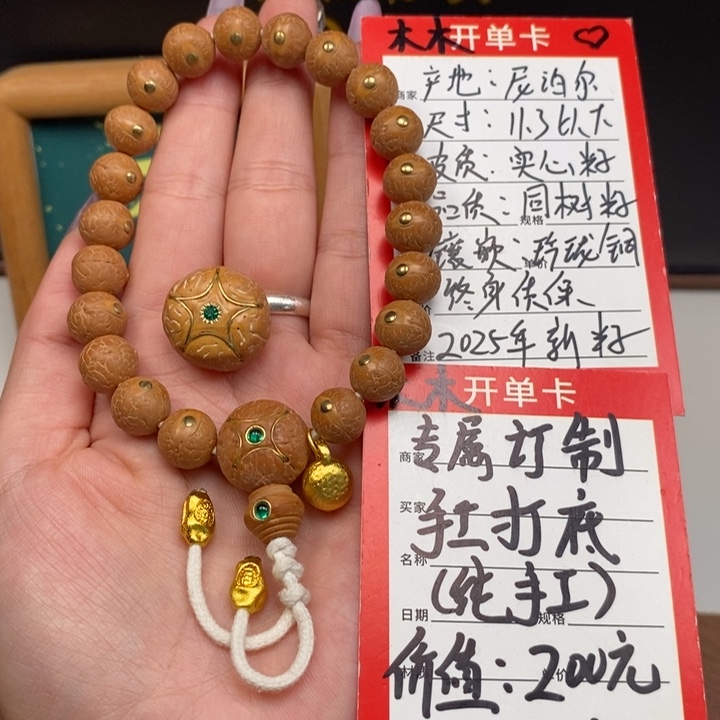 木木开单卡
商家 产地：尼泊尔
尺寸：11.3以下
皮质：实心籽
品质：同树籽
规格
镶嵌：玲珑铜
终身质保
备注 2025年新籽
木木开单卡
商家 专属订制
买家 手工打底
名称 (纯手工)
日期 规格
价值：200元